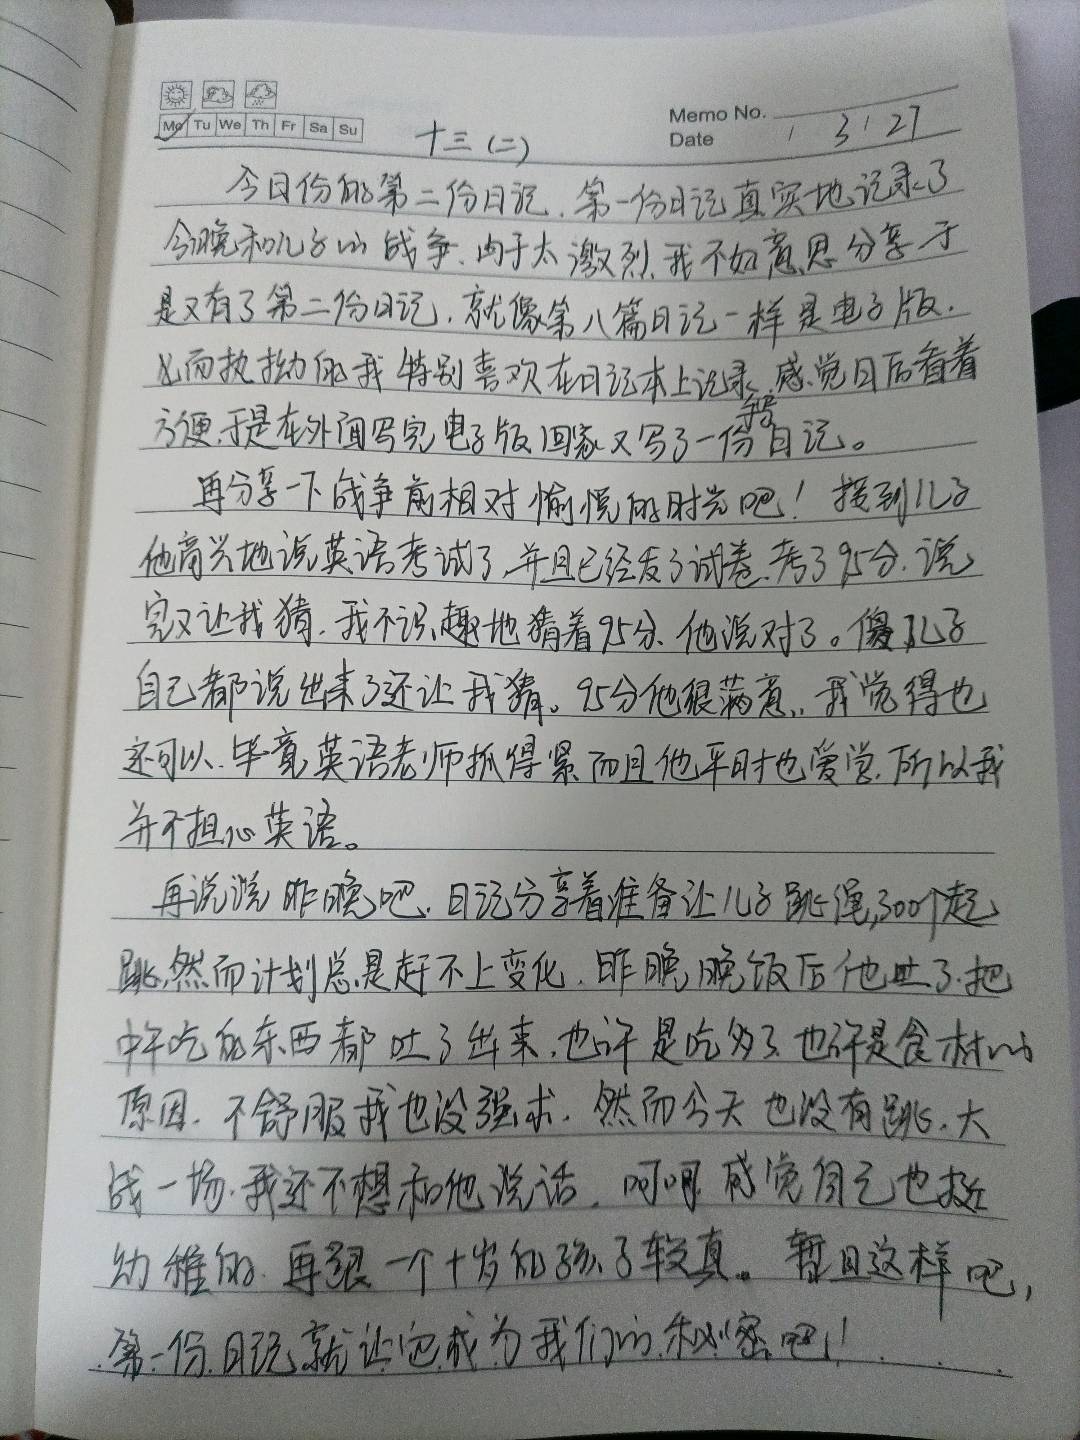 Memo No.
Mo Tu We Th Fr Sa Su
Date 3 27
十三(二)
今日份的第二份日记,第一份日记真实地记录了
今晚和儿子的战争,由于太激烈,我不好意思分享于
是又有了第二份日记,就像第八篇日记一样是电子版,
然而执拗的我特别喜欢在日记本上记录,感觉日后看着
方便,于是在外面写完电子版回家又写了一份手写日记。
再分享一下战争前相对愉悦的时光吧!接到儿子
他高兴地说英语考试了,并且已经发了试卷,考了95分,说
完又让我猜,我不识趣地猜着95分,他说对了。傻儿子
自己都说出来了还让我猜。95分他很满意,我觉得也
还可以,毕竟英语老师抓得紧而且他平时也爱学,所以我
并不担心英语。
再说说昨晚吧,日记分享着准备让儿子跳绳,300个起
跳,然而计划总是赶不上变化,昨晚晚饭后他吐了,把
中午吃的东西都吐了出来,也许是吃多了,也许是食材的
原因,不舒服我也没强求,然而今天也没有跳,大
战一场,我还不想和他说话,呵呵,感觉自己也挺
幼稚的,再跟一个十岁的孩子较真。暂且这样吧,
第一份日记就让它成为我们的秘密吧!